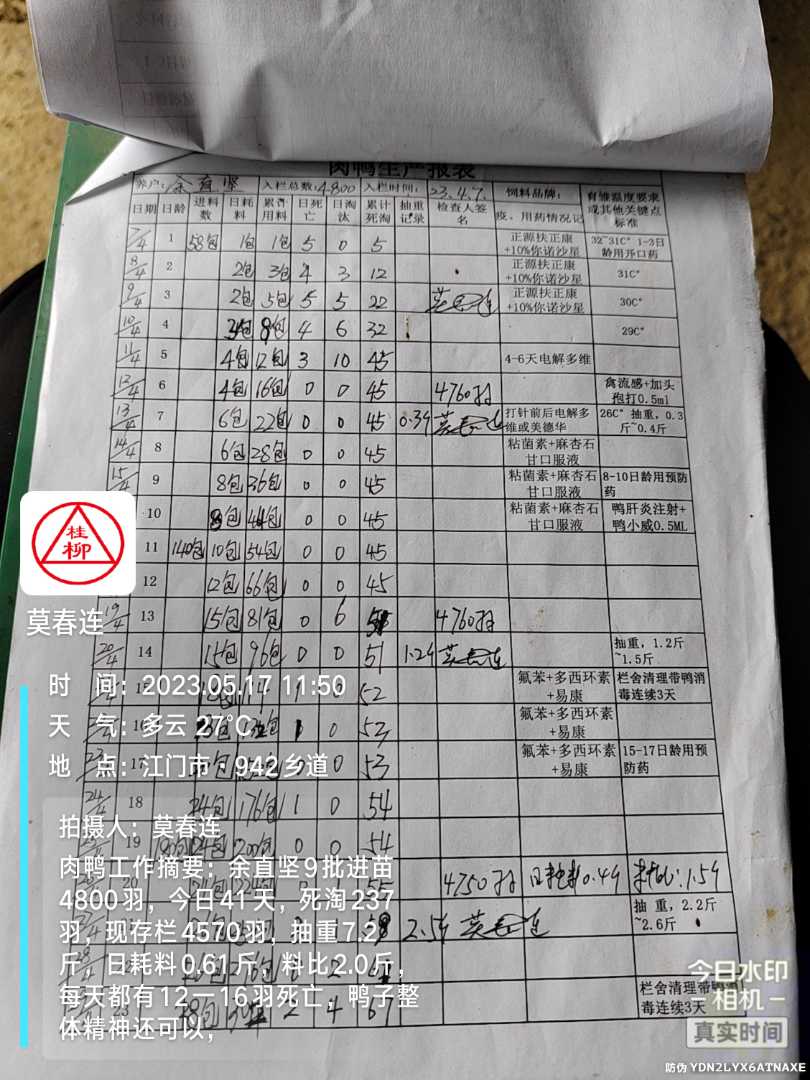 肉鸭生产报表
养户：余直坚 入栏总数：4800 入栏时间：23.4.7. 饲料品牌： 育雏温度要求或其他关键点标准
日期 日龄 进料数 日耗料 累计用料 日死亡 日淘汰 累计死淘 抽重记录 检查人签名 疫、用药情况记
7/4 1 58包 1包 1包 5 0 5 正源扶正康+10%你诺沙星 32~31C° 1-3日龄用开口药
8/4 2 2包 3包 4 3 12 正源扶正康+10%你诺沙星 31C°
9/4 3 2包 5包 5 5 22 莫春连 正源扶正康+10%你诺沙星 30C°
10/4 4 3包 8包 4 6 32 29C°
11/4 5 4包 12包 3 10 45 4-6天电解多维
12/4 6 4包 16包 0 0 45 4760羽 禽流感+加头孢打0.5ml
13/4 7 6包 22包 0 0 45 0.39 莫春连 打针前后电解多维或美德华 26C° 抽重，0.3斤~0.4斤
14/4 8 6包 28包 0 0 45 粘菌素+麻杏石甘口服液
15/4 9 8包 36包 0 0 45 粘菌素+麻杏石甘口服液 8-10日龄用预防药
10 8包 44包 0 0 45 粘菌素+麻杏石甘口服液 鸭肝炎注射+鸭小威0.5ML
11 140包 10包 54包 0 0 45
12 12包 66包 0 0 45
19/4 13 15包 81包 0 6 51 4760羽
20/4 14 15包 96包 0 0 51 1.29 莫春连 抽重，1.2斤~1.5斤
15 52 氟苯+多西环素+易康 栏舍清理带鸭消毒连续3天
16 1 0 53 氟苯+多西环素+易康
17 0 53 氟苯+多西环素+易康 15-17日龄用预防药
24/4 18 24包 176包 1 0 54
19 24包 200包 0 0 54
20 224包 55 4750羽 日耗料0.49 料比:1.59
58 2.59 莫春连 抽重，2.2斤~2.6斤
28包 2 4 67 栏舍清理带鸭消毒连续3天
桂柳
莫春连
时 间：2023.05.17 11:50
天 气：多云 27℃
地 点：江门市·942乡道
拍摄人：莫春连
肉鸭工作摘要：余直坚9批进苗
4800羽，今日41天，死淘237
羽，现存栏4570羽，抽重7.2
斤，日耗料0.61斤，料比2.0斤，
每天都有12一16羽死亡，鸭子整
体精神还可以，
今日水印
相机
真实时间
防伪 YDN2LYX6ATNAXE